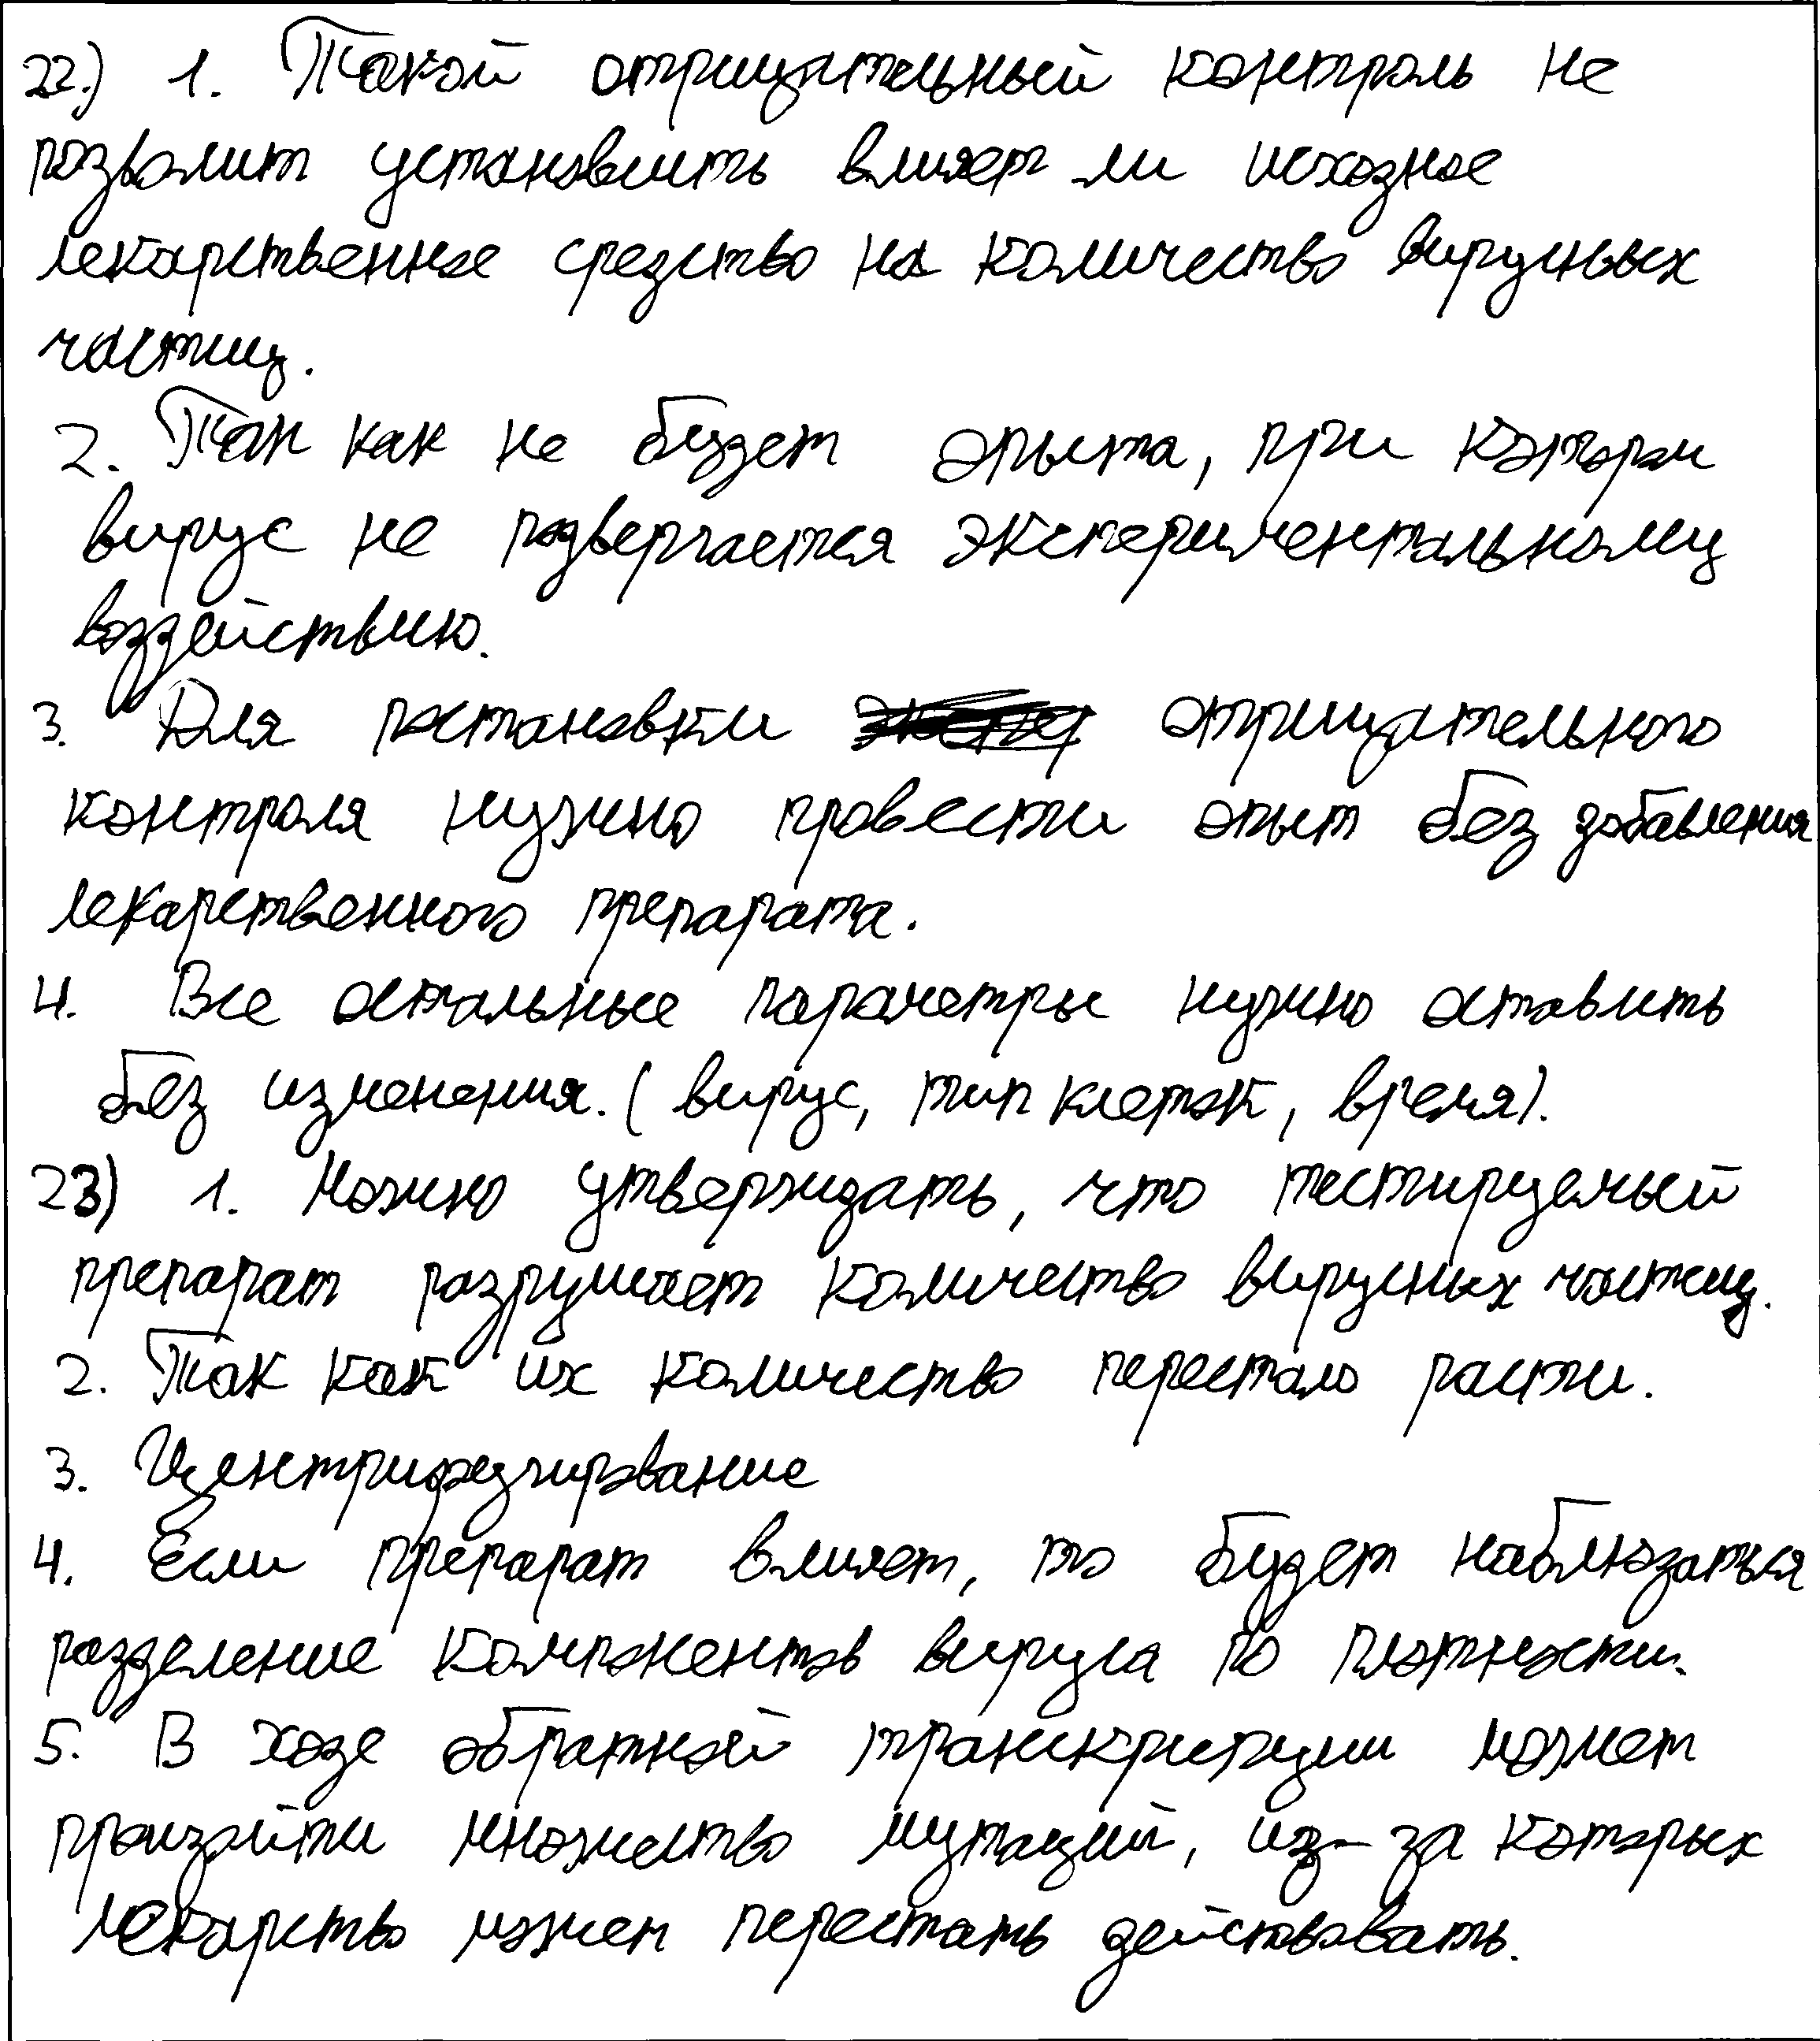 22.) 1. Такой отрицательный контроль не
позволит установить влияет ли исходное
лекарственное средство на количество вирусных
частиц.
2. Так как не будет опыта, при котором
вирус не подвергается экспериментальному
воздействию.
3. Для постановки отрицательного
контроля нужно провести опыт без добавления
лекарственного препарата.
4. Все остальные параметры нужно оставить
без изменения. (вирус, тип клеток, время).
23) 1. Можно утверждать, что тестируемый
препарат разрушает количество вирусных частиц.
2. Так как их количество перестало расти.
3. Центрифугирование
4. Если препарат влияет, то будет наблюдаться
разделение компонентов вируса по плотности.
5. В ходе обратной транскрипции может
произойти множество мутаций, из-за которых
лекарство может перестать действовать.